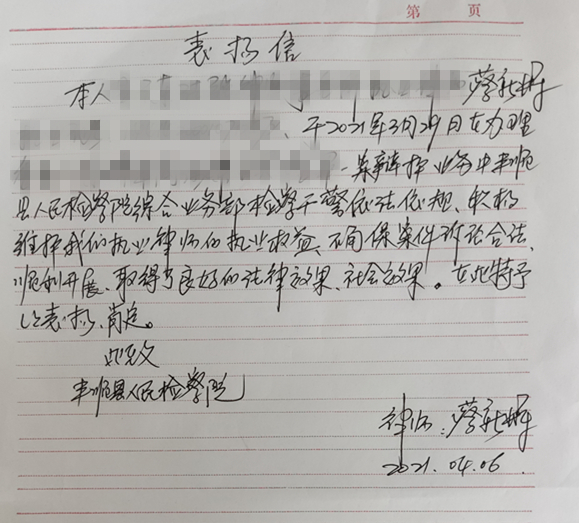 第 页
表扬信
本人 蔡新
于2021年3月29日在办理
一案辩护业务中丰顺
县人民检察院综合业务部检察干警依法依规、积极
维护我们执业律师的执业权益、确保案件诉讼合法、
顺利开展、取得了良好的法律效果、社会效果。在此特予
以表扬、肯定。
此致
丰顺县人民检察院
律师：蔡新
2021.04.06